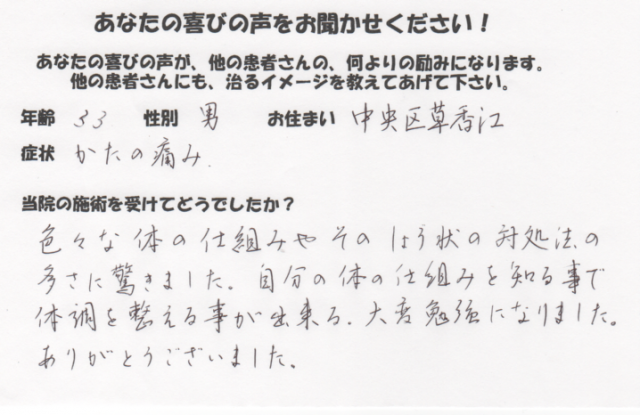 あなたの喜びの声をお聞かせください！
あなたの喜びの声が、他の患者さんの、何よりの励みになります。
他の患者さんにも、治るイメージを教えてあげて下さい。
年齢 33 性別 男 お住まい 中央区草香江
症状 かたの痛み
当院の施術を受けてどうでしたか？
色々な体の仕組みやそのしょう状の対処法の
多さに驚きました。自分の体の仕組みを知る事で
体調を整える事が出来る、大変勉強になりました。
ありがとうございました。